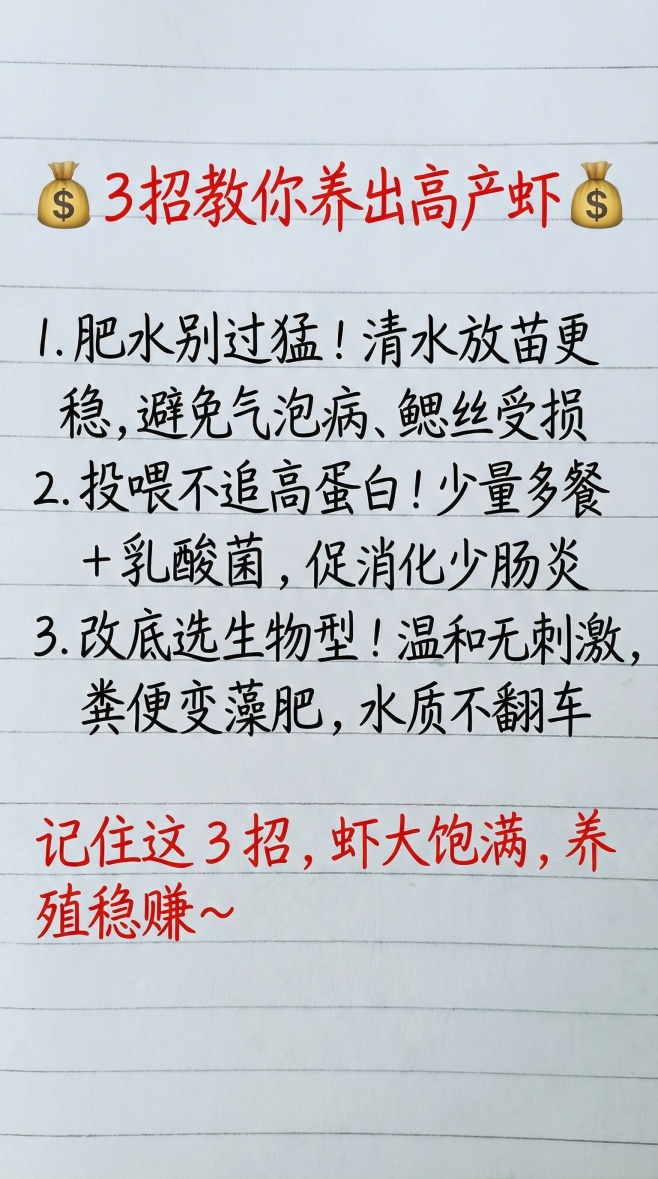 💰3招教你养出高产虾💰
1. 肥水别过猛！清水放苗更
稳,避免气泡病、鳃丝受损
2. 投喂不追高蛋白！少量多餐
+乳酸菌,促消化少肠炎
3. 改底选生物型！温和无刺激,
粪便变藻肥,水质不翻车
记住这3招,虾大饱满,养
殖稳赚~